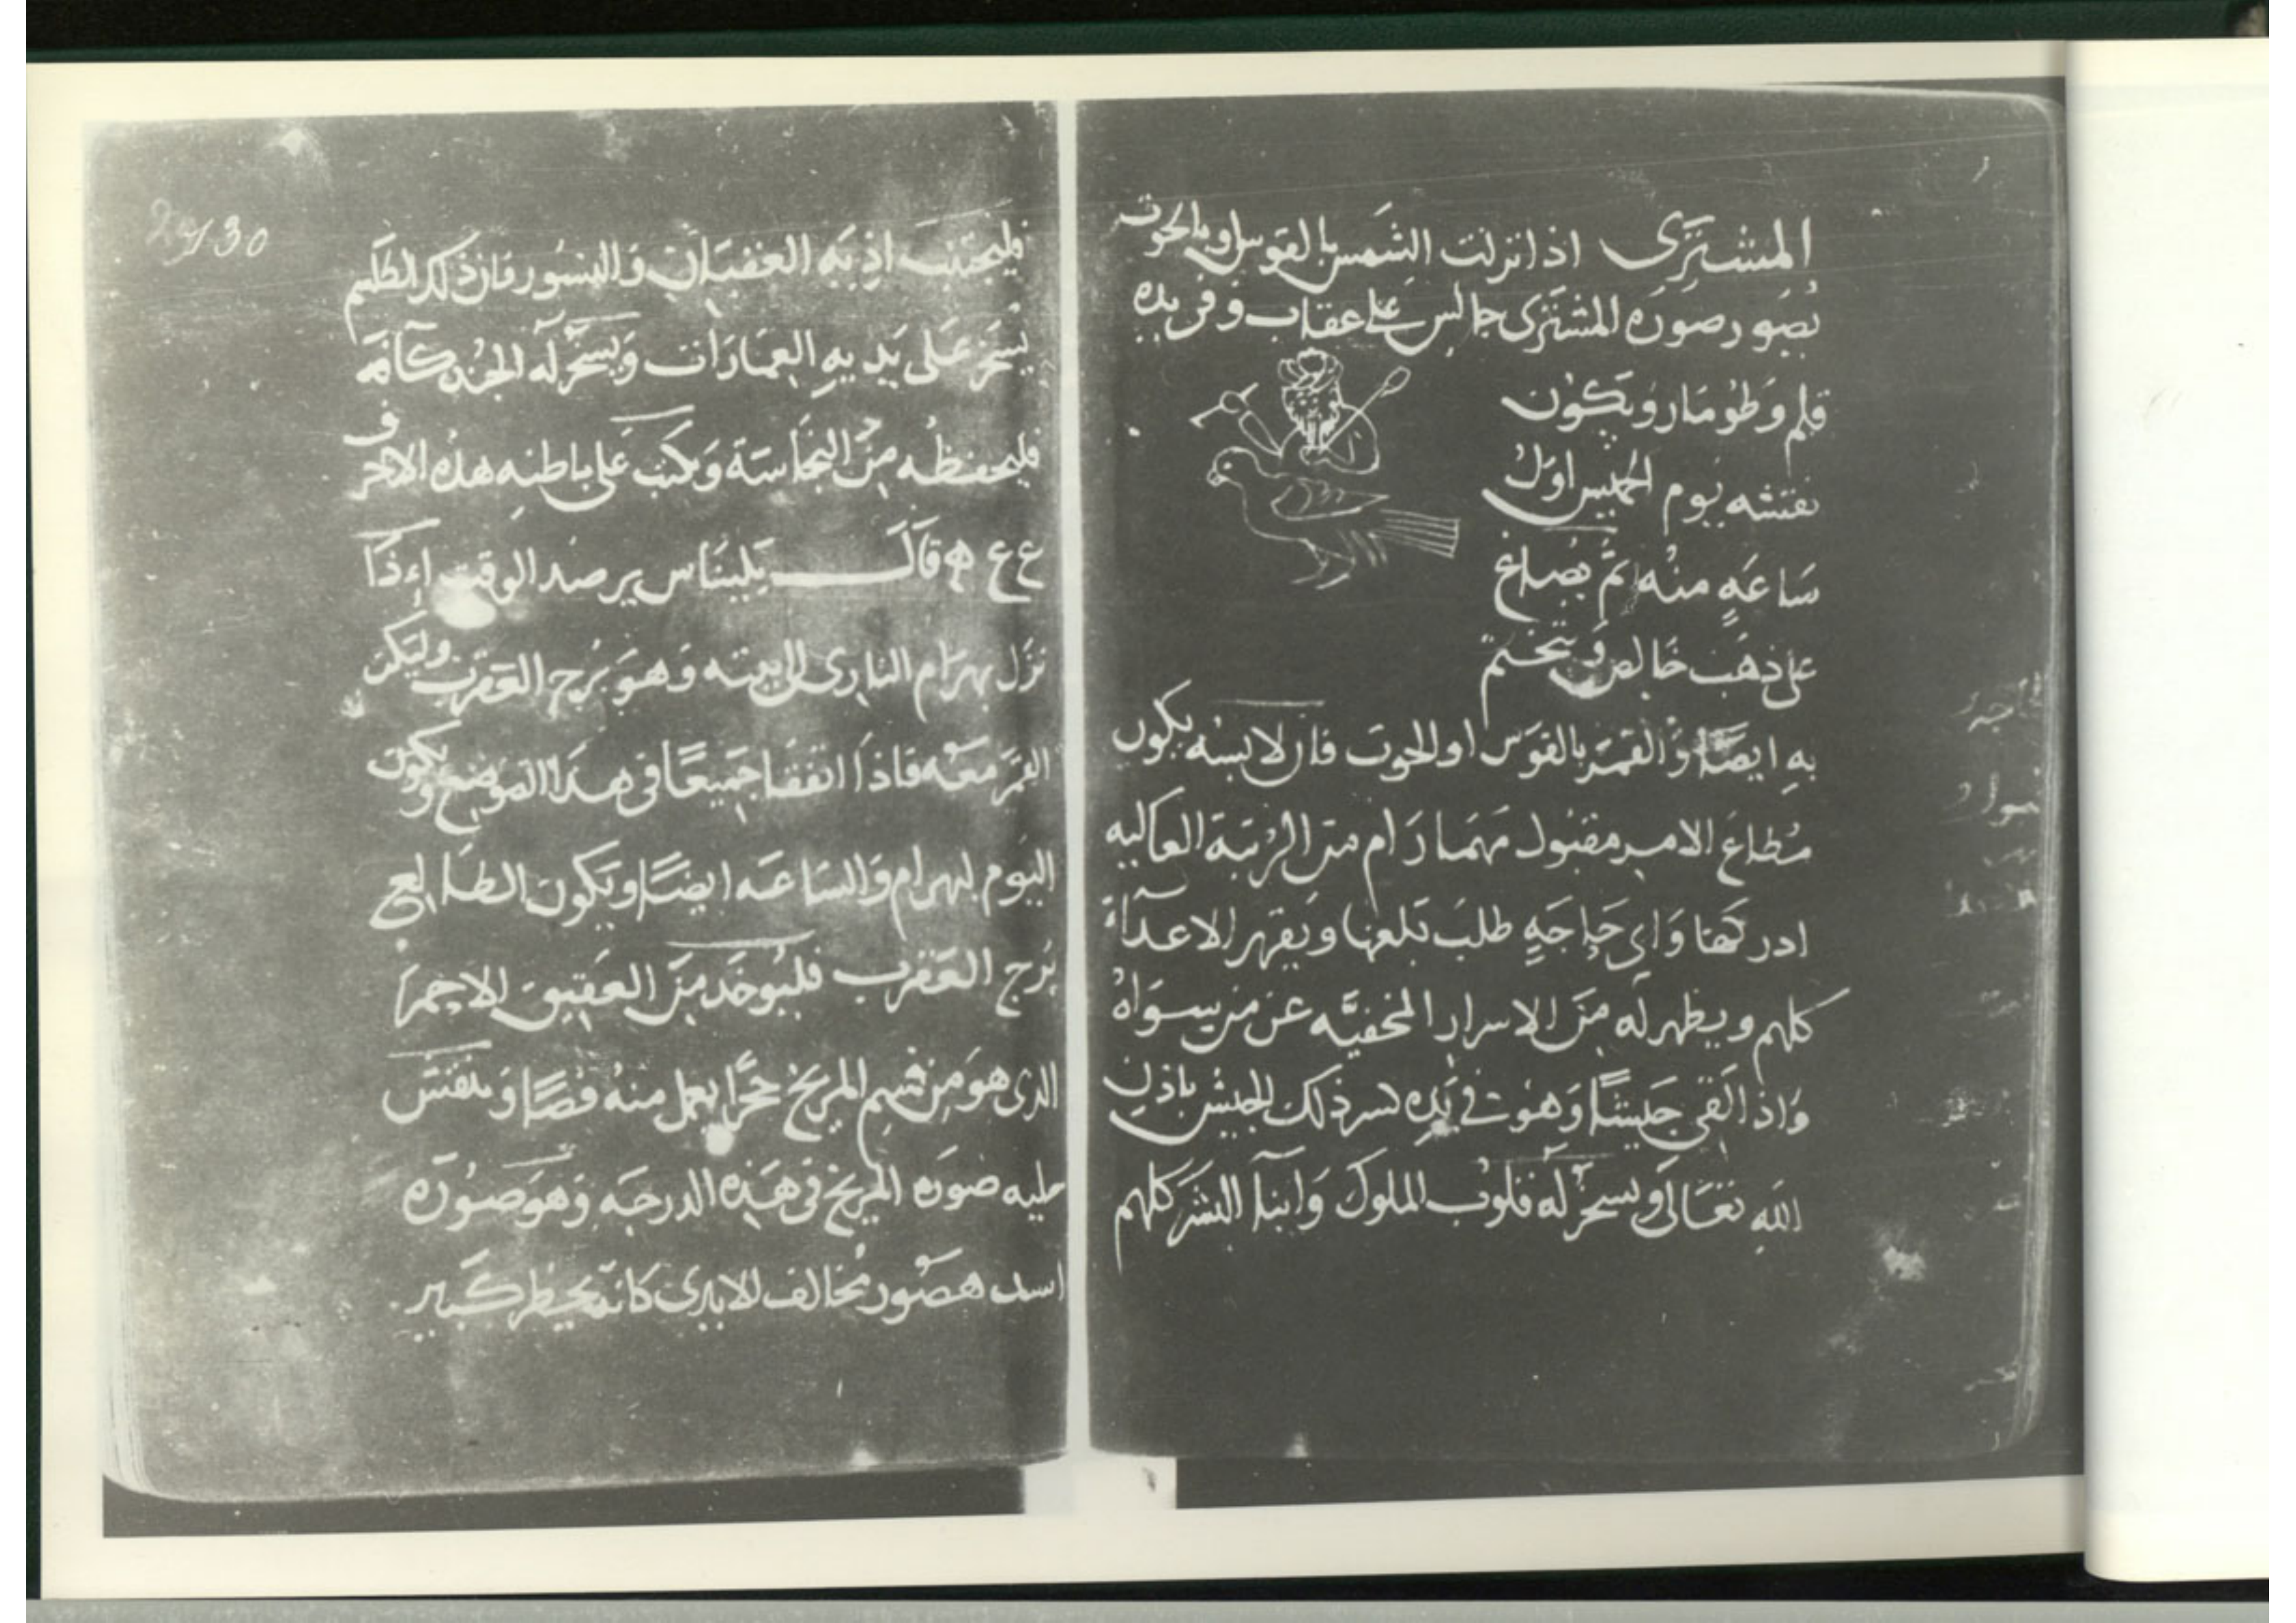 المشترى اذا نزلت الشمس بالقوس او بالحوت
يصور صورة المشترى جالس على عقاب وفى يده
قلم وطومار ويكون
نقشه يوم الخميس اول
ساعة منه ثم يصاغ
على ذهب خالص ويتختم
به ايضا والقمر بالقوس او الحوت فان لابسه يكون
مطاع الامر مقبول مهما رام من الرتبة العاليه
ادركها واى حاجة طلب بلغها ويقهر الاعداء
كلهم ويظهر له من الاسرار المخفيه عن من سواه
واذا لقى جيشا وهو فى يده كسر ذلك الجيش باذن
الله تعالى ويسخر له قلوب الملوك وابنا البشر كلهم
2 130
فليجتنب اذية العقبان والنسور فان ذلك الطلسم
يسخر على يديه العمارات ويسخر له الجن كآفة
فليحفظه من النجاسة وكتب على باطنه هذه الاحرف
ع ع ه قال بليناس يرصد الوقت اءذا
نزل بهرام النارى الى بيته وهو برج العقرب وليكن
القمر معه فاذا اتفقا جميعا فى هذا الموضع ويكون
اليوم لبهرام والساعه ايضا ويكون الطالع
برج العقرب فليوخذ من العقيق الاحمر
الذى هو من قسم المريخ حجرا يعمل منه فصا وينقش
عليه صورة المريخ فى هذه الدرجه وهو صورة
اسد هصور مخالف للايدى كانه يخطر كبير